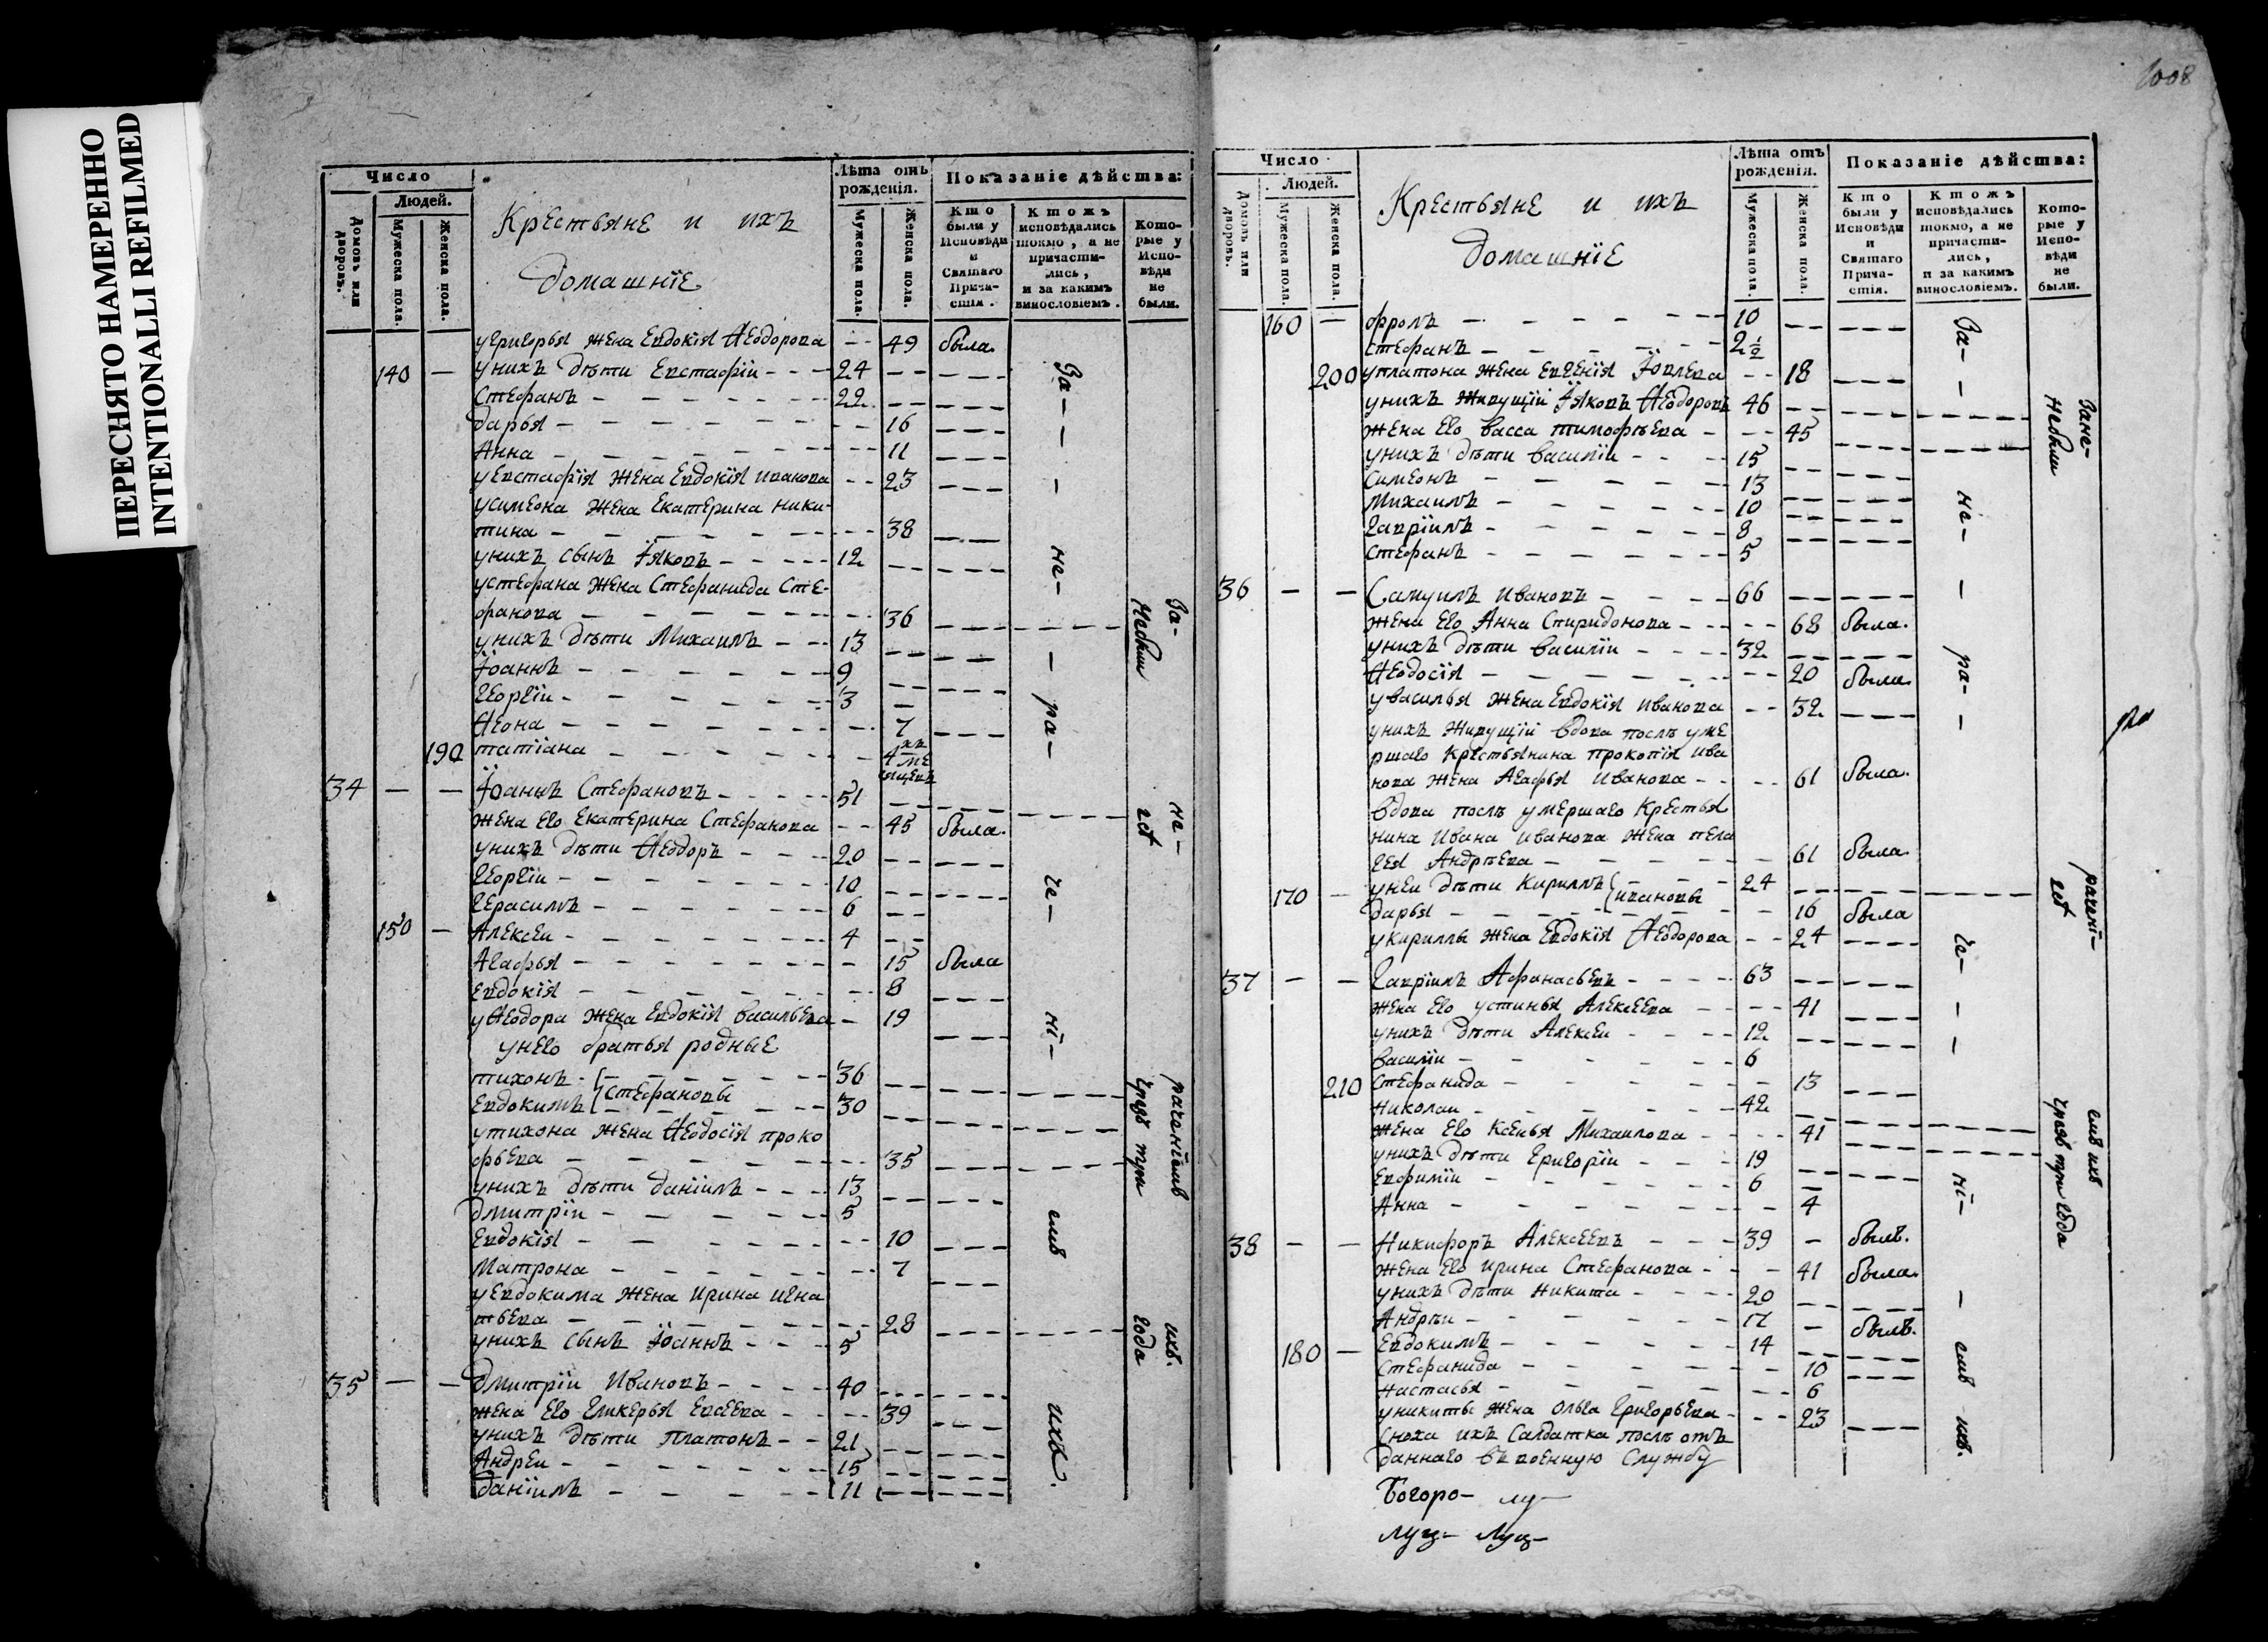 ПЕРЕСНЯТО НАМЕРЕННО
INTENTIONALLI REFILMED
Число
Людей.
Домовъ или дворовъ.
Мужеска пола.
Женска пола.
Крестьяне и ихъ
домашніе
Лѣта отъ рожденія.
Мужеска пола.
Женска пола.
Показаніе дѣйства:
Кто были у Исповѣди и Святаго Прича- стія.
Ктожъ исповѣдались токмо, а не причасти- лись, и за какимъ винословіемъ.
Кото- рые у Испо- вѣди не были.
угригорья жена Евдокія Ѳеодорова - - 49 была.
140 — унихъ дѣти Евстафіи - - - 24
Стефанъ - - - 22
дарья - - - 16
Анна - - - 11
уЕвстафія жена Евдокія иванова - - 23
усимеона жена Екатерина ники-
тина - - - 38
унихъ сынъ Їяковъ - - - 12
устефана жена Стефанида Сте-
фанова - - - 36
унихъ дѣти Михаилъ - - 13
Їоаннъ - - - 9
Георгіи - - - 3
Ѳеона - - - 7
190 татіана - - - 4 хъ месяцевъ
34 — — Їоаннъ Стефановъ - - - 51
жена его Екатерина Стефанова - - 45 была.
унихъ дѣти Ѳеодоръ - - - 20
Георгіи - - - 10
Герасимъ - - - 6
150 — Алексеи - - - 4
Агафья - - - 15 была
Евдокія - - - 8
уѲеодора жена Евдокія васильева - 19
унего братья родные
тихонъ - - - 36
Стефановы
Евдокимъ - - - 30
утихона жена Ѳеодосія проко
фьева - - - 35
унихъ дѣти даніилъ - - - 13
дмитріи - - - 5
Евдокія - - - 10
Матрона - - - 7
уЕвдокима жена ирина игна
тьева - - - 28
унихъ сынъ Їоаннъ - - - 5
35 — — дмитріи Ивановъ - - - 40
жена его гликерья Евсеева - - - 39
унихъ дѣти платонъ - - 21
Андреи - - - 15
даніилъ - - - 11
За-
не-
ра-
че-
ні-
емъ
ихъ.
За-
не-
раченіемъ
ихъ.
Небыли
трехъ
года
1008
Число
Людей.
Домовъ или дворовъ.
Мужеска пола.
Женска пола.
Крестьяне и ихъ
домашніе
Лѣта отъ рожденія.
Мужеска пола.
Женска пола.
Показаніе дѣйства:
Кто были у Исповѣди и Святаго Прича- стія.
Ктожъ исповѣдались токмо, а не причасти- лись, и за какимъ винословіемъ.
Кото- рые у Испо- вѣди не были.
160 — фролъ - - - 10
стефанъ - - - 2 1/2
200 уплатона жена Евгенія Їовлева - - 18
унихъ живущіи Їяковъ Ѳеодоровъ 46
жена его васса тимофѣева - - - 45
унихъ дѣти василіи - - - 15
Симеонъ - - - 13
Михаилъ - - - 10
Гавріилъ - - - 8
стефанъ - - - 5
36 — — Самуилъ Ивановъ - - - 66
жена его Анна Спиридонова - - - 68 была.
унихъ дѣти василіи - - - 32
Ѳеодосія - - - 20 была.
увасилья жена Евдокія иванова - - 32
унихъ живущіи вдова послѣ уме
ршаго крестьянина прокопія ива
нова жена Агафья иванова - - - 61 была.
вдова послѣ умершаго крестья
нина ивана иванова жена пела
гея Андрѣева - - - 61 была.
170 — унеи дѣти кириллъ - - - 24
ивановы
дарья - - - 16 была
укириллы жена Евдокія Ѳеодорова - - 24
37 — — Гавріилъ Афанасьевъ - - - 63
жена его устинья Алексеева - - - 41
унихъ дѣти Алексеи - - - 12
василіи - - - 6
210 стефанида - - - 13
николаи - - - 42
жена его ксенья Михаилова - - - 41
унихъ дѣти григоріи - - - 19
Евфиміи - - - 6
Анна - - - 4
38 — — Никифоръ Алексеевъ - - - 39 - былъ.
жена его ирина Стефанова - - - 41 была.
унихъ дѣти никита - - - 20
Андрѣи - - - 17 - былъ.
180 — Евдокимъ - - - 14
стефанида - - - 10
настасья - - - 6
уникиты жена ольга григорьева - - - 23
сноха ихъ Салдатка послѣ отъ
даннаго въ военную службу
За-
не-
ра-
че-
ні-
емъ ихъ.
Зане-
рачені-
емъ ихъ
Небыли
года
Богоро-
луц- Луц-